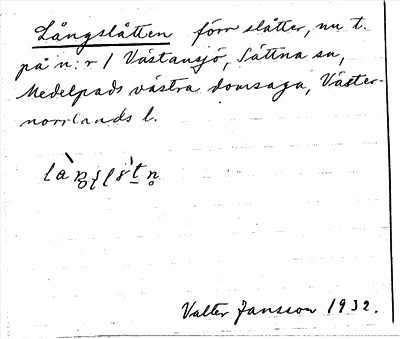 Långslåtten förr slåtter, nu t.
på n:r 1 Västansjö, Sättna sn,
Medelpads västra domsaga, Väster-
norrlands l.
Valter Jansson 1932.